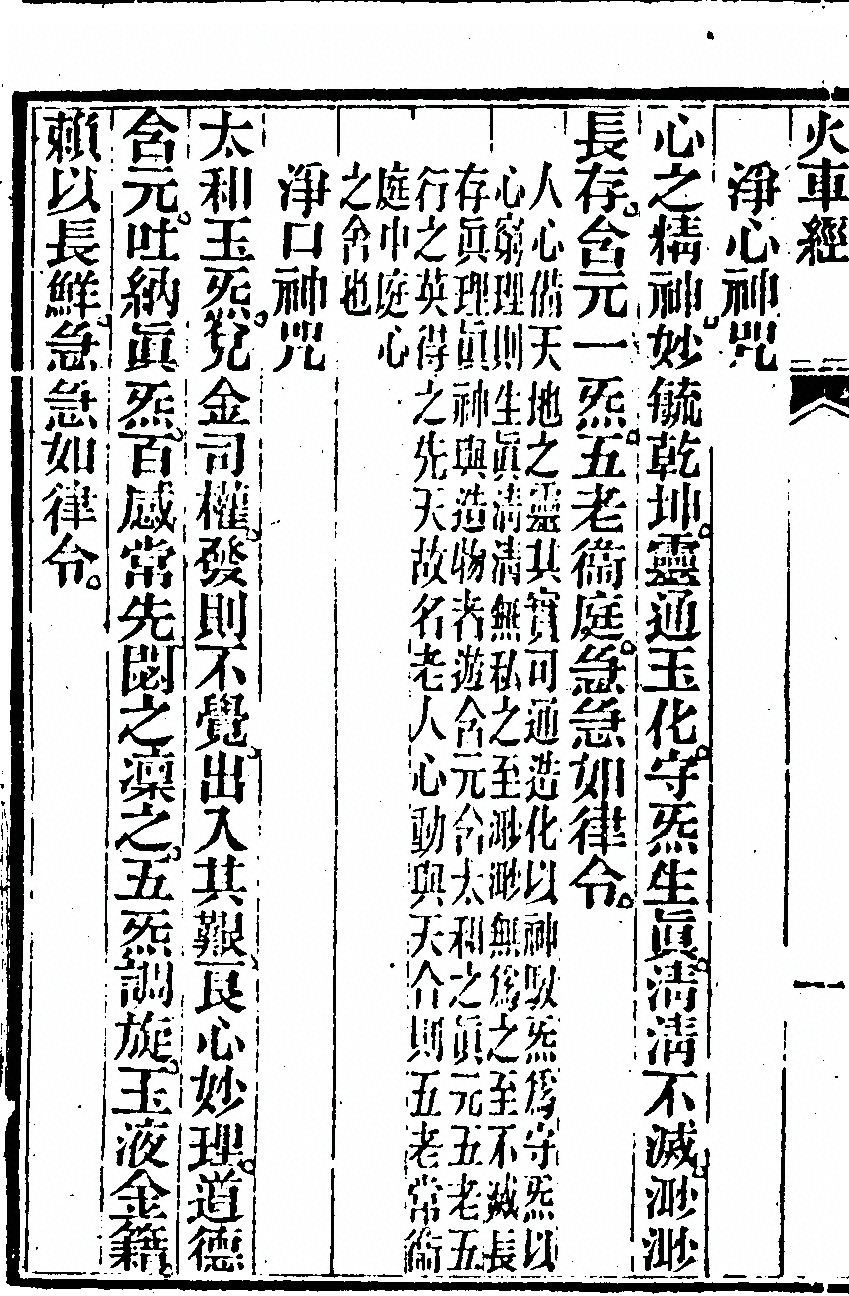 火車經
一
淨心神咒
心之精神。妙毓乾坤。靈通玉化。守炁生眞。淸淸不滅。渺渺
長存。含元一炁。五老衞庭。急急如律令。
人心備天地之靈其實可通造化以神馭炁爲守炁以
心窮理則生眞淸淸無私之至渺渺無爲之至不滅長
存眞理眞神與造物者遊含元含太和之眞元五老五
行之英得之先天故名老人心動與天合則五老常衞
庭中庭心
之舍也
淨口神咒
太和玉炁。兌金司權。發則不覺。出入其艱。艮心妙理。道德
含元。吐納眞炁。百感常先。閟之凜之。五炁調旋。玉液金籍。
賴以長鮮。急急如律令。